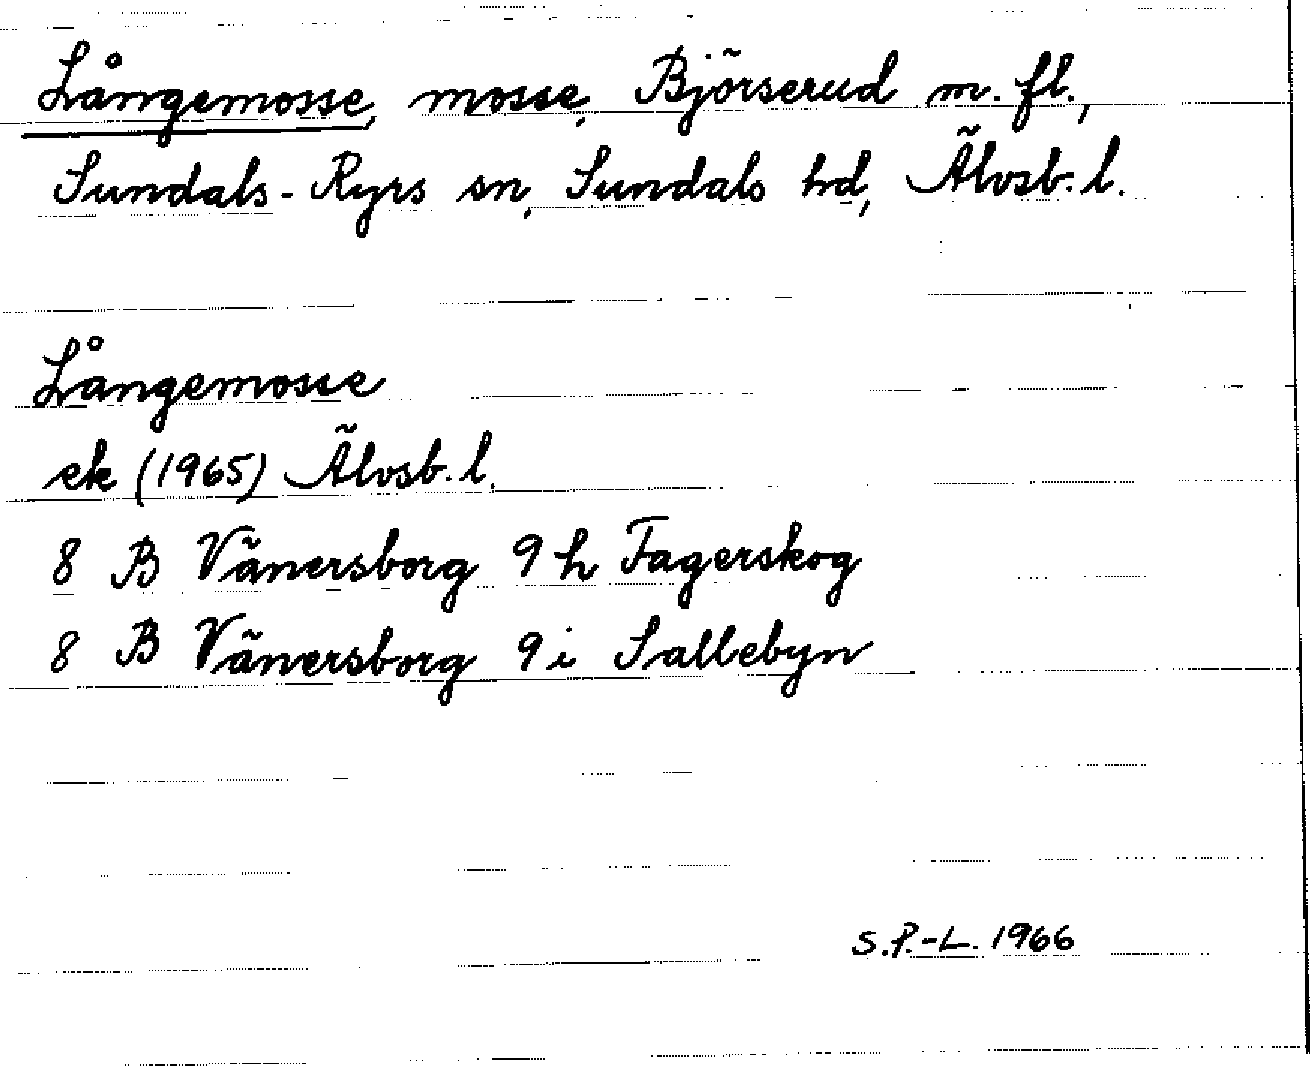 Långemosse, mosse, Björserud m. fl.,
Sundals-Ryrs sn, Sundals hd, Älvsb. l.
Långemosse
ek (1965) Älvsb. l.
8 B Vänersborg 9 h Fagerskog
8 B Vänersborg 9 i Sallebyn
S.P.-L. 1966